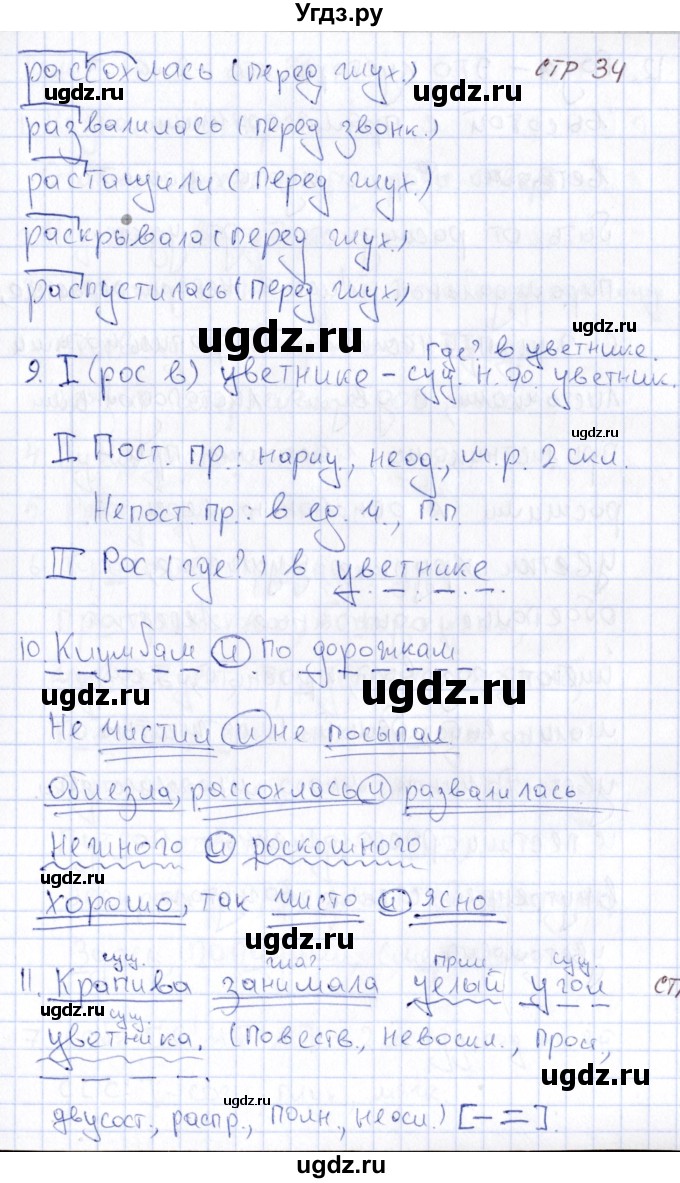 Угдз.ру
рассохлась (перед глух.) стр 34
ugdz.ru ugdz.ru
развалилась (перед звонк.)
ugdz.ru
растащили (перед глух.)
раскрывала (перед глух.)
распустилась (перед глух.)
ugdz.ru
ugdz.ru
Где? в цветнике.
9. I (рос в) цветнике – сущ. Н.ф. цветник.
ugdz.ru
II Пост. пр.: нариц., неод., м.р. 2 скл.
Непост. пр.: в ед. ч., П.п.
III Рос (где?) в цветнике
ugdz.ru
10. Клумбам и по дорожкам
ugdz.ru ugdz.ru
Не чистил и не посыпал.
Облезла, рассохлась и развалилась.
Нежного и роскошного
ugdz.ru
Хорошо, так чисто и ясно
ugdz.ru
сущ. глаг. прил. сущ.
11. Крапива занимала целый угол
сущ.
цветника. (Повеств., невоскл., прост.,
ugdz.ru
ugdz.ru
двусост., распр., полн., неосл.) [– =].
ugdz.ru